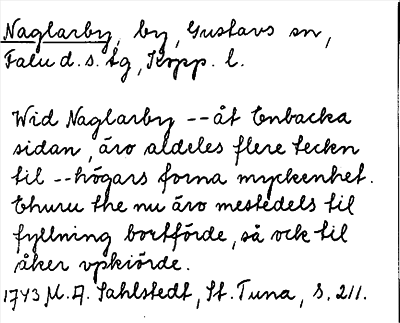 Naglarby, by, Gustavs sn,
Falu d.s. tg, Kopp. l.
Wid Naglarby -- åt Enbacka
sidan, äro aldeles flere teckn
til -- högars forna myckenhet.
Ehuru the nu äro mestedels til
fyllning bortförde, så ock til
åker vpkiörde.
1743 M. A. Sahlstedt, St. Tuna, s. 211.